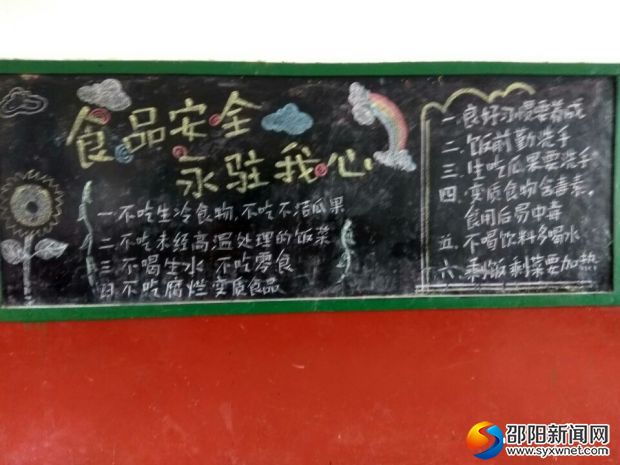 食品安全
永驻我心
一 不吃生冷食物,不吃不洁瓜果
二 不吃未经高温处理的饭菜
三 不喝生水 不吃零食
四 不吃腐烂变质食品
一 良好习惯要养成
二、饭前勤洗手
三、生吃瓜果要洗手
四、变质食物含毒素,
食用后易中毒
五、不喝饮料多喝水
六、剩饭剩菜要加热
邵阳新闻网
www.syxwnet.com